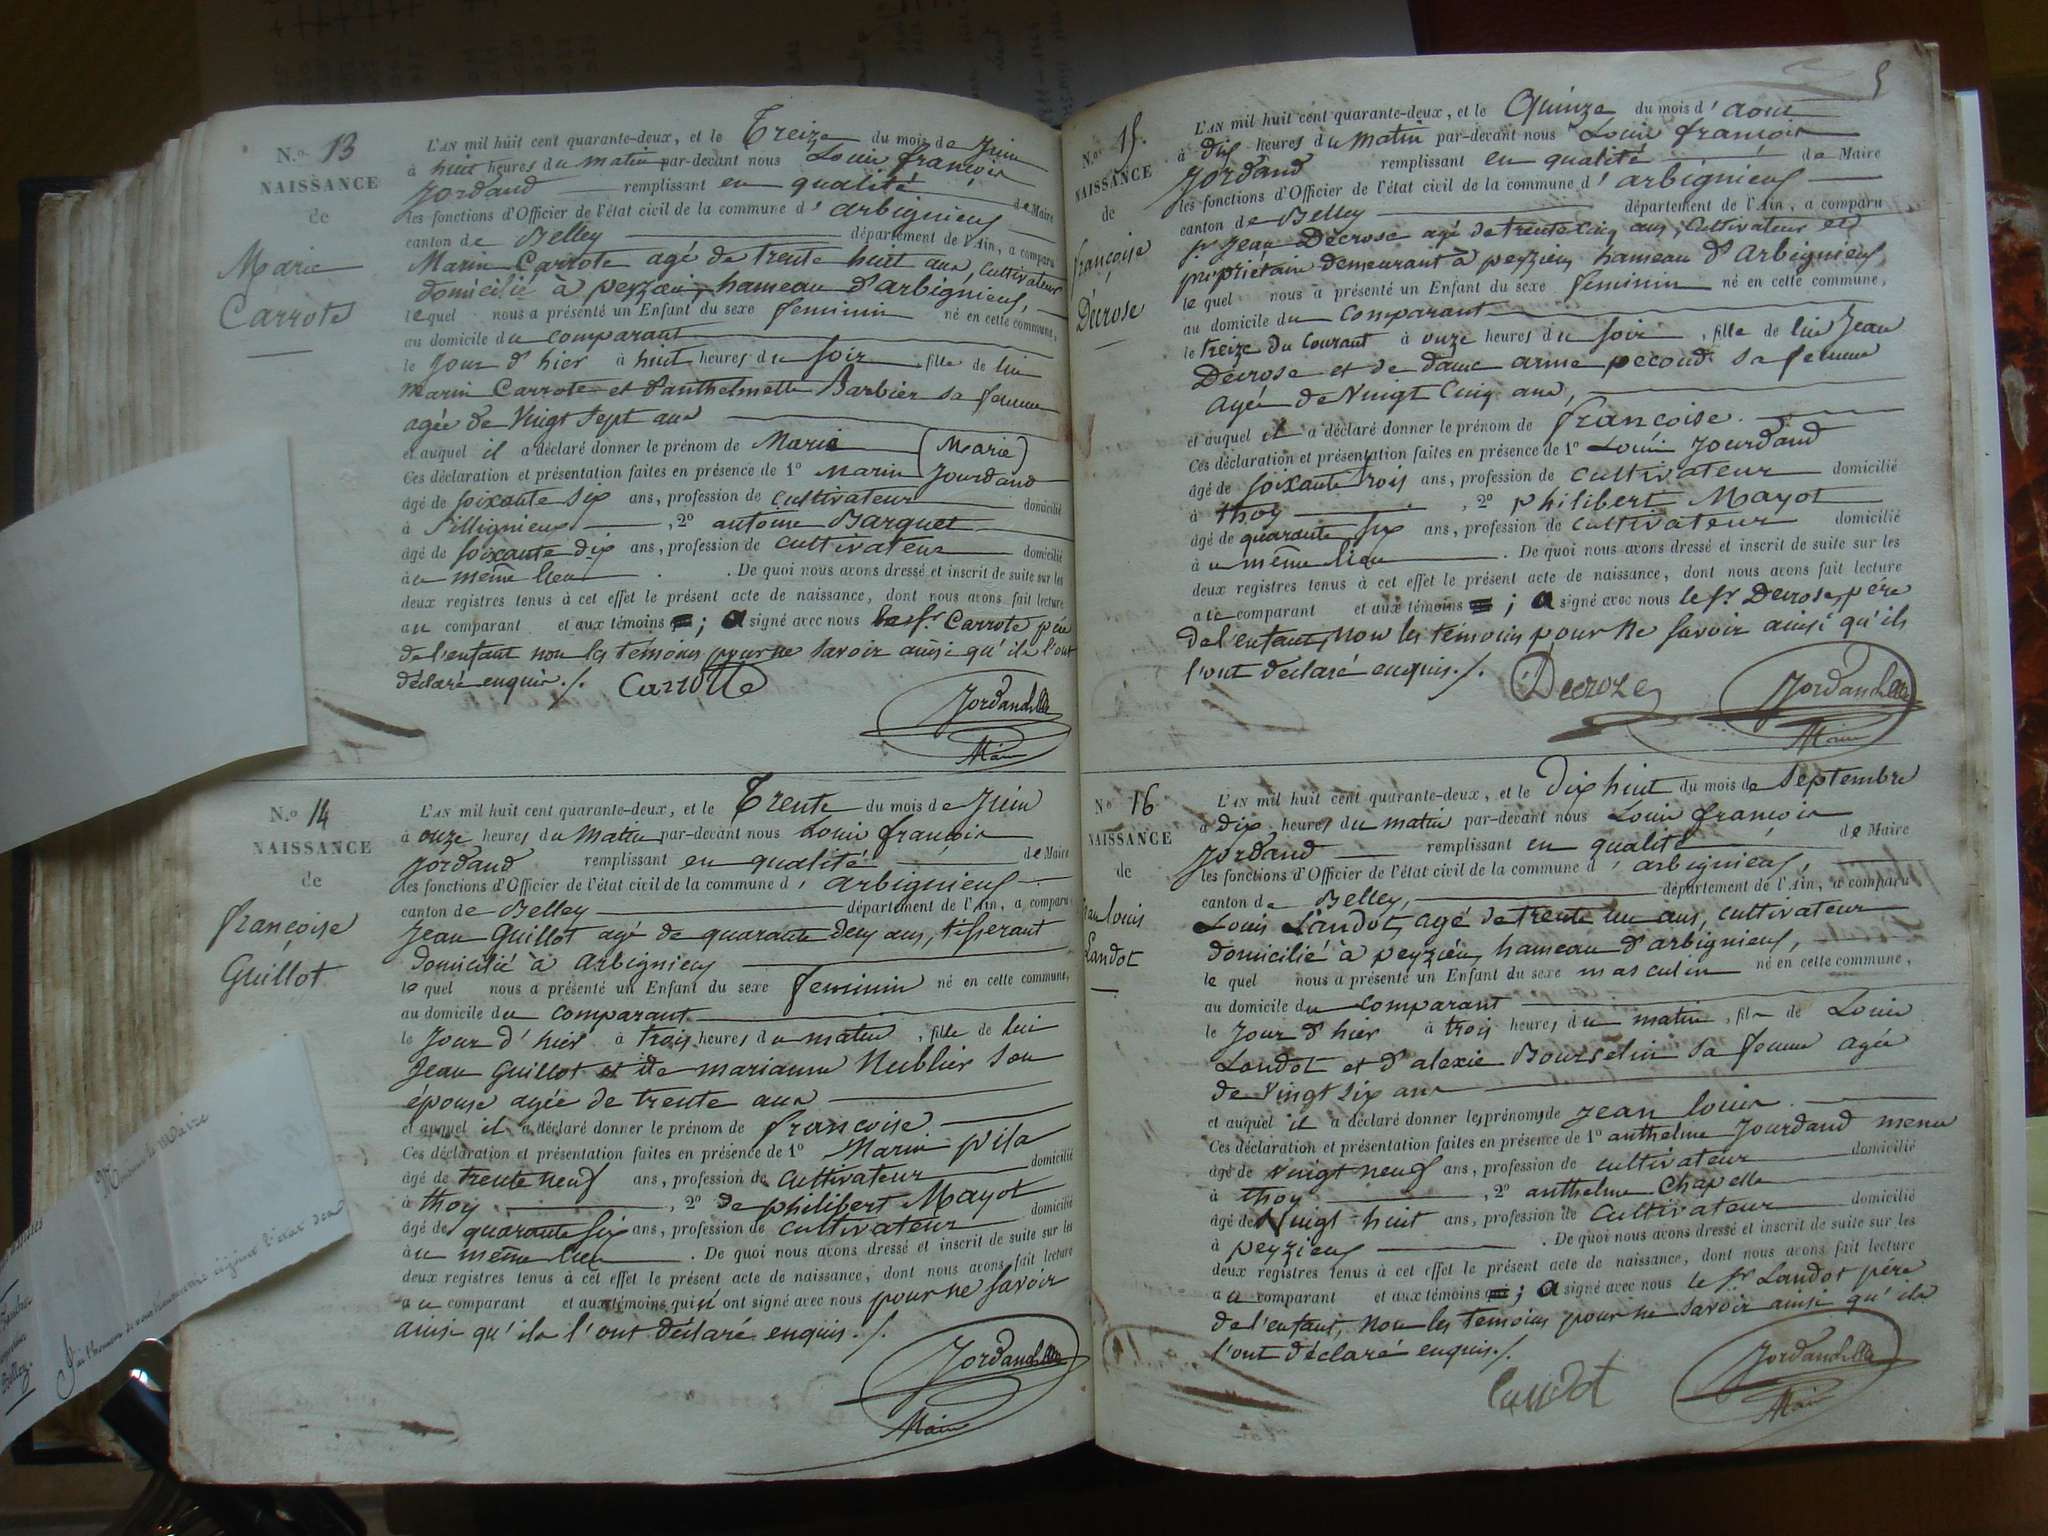 N.o 13
NAISSANCE
de
Marie
Carrote
L'AN mil huit cent quarante-deux, et le Treize du mois de Juin
à huit heures du matin par-devant nous Louis françois
Jordand remplissant en qualité de Maire
les fonctions d'Officier de l'état civil de la commune d'arbignieu
canton de Belley département de l'Ain, a comparu
Marin Carrote agé de trente huit ans, cultivateur
domicilié à peyzieu, hameau d'arbignieu,
lequel nous a présenté un Enfant du sexe feminin né en cette commune,
au domicile du comparant
le Jour d'hier à huit heures du soir, fille de lui
Marin Carrote et d'anthelmette Barbier sa femme
agée de vingt sept ans
et auquel il a déclaré donner le prénom de Marie (Marie)
Ces déclaration et présentation faites en présence de 1o Marin Jourdand
âgé de soixante six ans, profession de cultivateur domicilié
à Sillignieu, 2o antoine Barquet
âgé de soixante dix ans, profession de cultivateur domicilié
au même lieu. De quoi nous avons dressé et inscrit de suite sur les
deux registres tenus à cet effet le présent acte de naissance, dont nous avons fait lecture
au comparant et aux témoins ; a signé avec nous le sr. Carrote père
de l'enfant non les témoins pour ne savoir ainsi qu'ils l'ont
déclaré enquis./. Carrotte
Jordand
Maire
N.o 14
NAISSANCE
de
françoise
Guillot
L'AN mil huit cent quarante-deux, et le Trente du mois de Juin
à onze heures du matin par-devant nous Louis françois
Jordand remplissant en qualité de Maire
les fonctions d'Officier de l'état civil de la commune d'arbignieu
canton de Belley département de l'Ain, a comparu
Jean Guillot agé de quarante deux ans, tisserant
domicilié à arbignieu
lequel nous a présenté un Enfant du sexe feminin né en cette commune,
au domicile du comparant
le Jour d'hier à trois heures du matin, fille de lui
Jean Guillot et de marianne Nublier son
épouse agée de trente ans
et auquel il a déclaré donner le prénom de françoise
Ces déclaration et présentation faites en présence de 1o Marin pisa
âgé de trente neuf ans, profession de cultivateur domicilié
à thoy, 2o de philibert Mayot
âgé de quarante six ans, profession de cultivateur domicilié
au même lieu. De quoi nous avons dressé et inscrit de suite sur les
deux registres tenus à cet effet le présent acte de naissance, dont nous avons fait lecture
au comparant et aux témoins qui n'ont signé avec nous pour ne savoir
ainsi qu'ils l'ont déclaré enquis./.
Jordand
Maire
Monsieur le Maire
J'ai l'honneur de vous
Belley
5
N.o 15.
NAISSANCE
de
françoise
Décrose
L'AN mil huit cent quarante-deux, et le Quinze du mois d'aout
à dix heures du matin par-devant nous Louis françois
Jordand remplissant en qualité de Maire
les fonctions d'Officier de l'état civil de la commune d'arbignieu
canton de Belley département de l'Ain, a comparu
sr. Jean Décrose agé de trente cinq ans, cultivateur et
propriétaire demeurant à peyzieu hameau d'arbignieu,
lequel nous a présenté un Enfant du sexe feminin né en cette commune,
au domicile du comparant
le treize du courant à onze heures du soir, fille de lui Jean
Décrose et de dame anne pecoud sa femme
agée de vingt cinq ans,
et auquel il a déclaré donner le prénom de françoise.
Ces déclaration et présentation faites en présence de 1o Louis Jourdand
âgé de soixante trois ans, profession de cultivateur domicilié
à thoy, 2o philibert Mayot
âgé de quarante six ans, profession de cultivateur domicilié
au même lieu. De quoi nous avons dressé et inscrit de suite sur les
deux registres tenus à cet effet le présent acte de naissance, dont nous avons fait lecture
au comparant et aux témoins ; a signé avec nous le sr. Decrose, père
de l'enfant, non les témoins pour ne savoir ainsi qu'ils
l'ont déclaré enquis./. Decroze
Jordand
Maire
N.o 16
NAISSANCE
de
Jean louis
Landot
L'AN mil huit cent quarante-deux, et le Dix huit du mois de Septembre
à dix heures du matin par-devant nous Louis françois
Jordand remplissant en qualité de Maire
les fonctions d'Officier de l'état civil de la commune d'arbignieu,
canton de Belley, département de l'Ain, a comparu
Louis Landot, agé de trente un ans, cultivateur
domicilié à peyzieu, hameau d'arbignieu,
lequel nous a présenté un Enfant du sexe masculin né en cette commune,
au domicile du comparant
le Jour d'hier à trois heures du matin, fils de Louis
Landot et d'alexie Bourselin sa femme agée
de vingt six ans
et auquel il a déclaré donner les prénoms de jean louis.
Ces déclaration et présentation faites en présence de 1o anthelme Jourdand menu
âgé de vingt neuf ans, profession de cultivateur domicilié
à thoy, 2o anthelme Chapelle
âgé de vingt-huit ans, profession de cultivateur domicilié
à peyzieu. De quoi nous avons dressé et inscrit de suite sur les
deux registres tenus à cet effet le présent acte de naissance, dont nous avons fait lecture
au comparant et aux témoins ; a signé avec nous le sr Landot père
de l'enfant, non les témoins pour ne savoir ainsi qu'ils
l'ont déclaré enquis./.
landot
Jordand
Maire